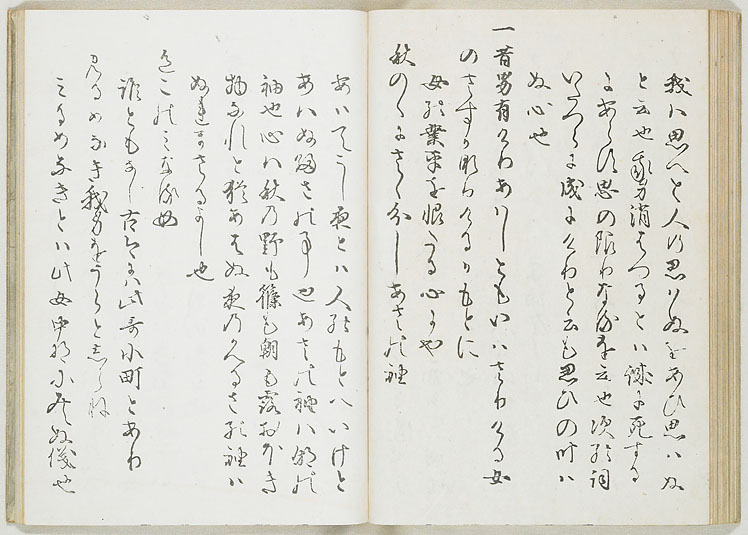 我は思へと人の思はぬをあひ思はぬ
と云也我身消はつるとは誠に死する
にあらす思の限りなきを云也次の詞
いたつらに成にけりと云も思ひの叶は
ぬ心也
一昔男有けりあはしともいはさりける女
のさすか成りけるかもとに
女の業平を恨たる心にや
秋のゝにさゝ分しあさの袖
あはてこし夜とは人のもとへいけと
あはぬ帰さの事也あさの袖は朝の
袖也心は秋の野も篠も朝も露おほき
物なれと猶あはぬ夜のかへるさの袖は
ぬれまさるよし也
色このみなる女
誰ともなし古今には此哥小町とあり
みるめなき我身をうらとしらね
みるめなきとは此女中将にみえぬ儀也